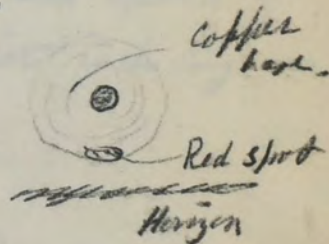 Copper
haze.
Red spot
Horizon